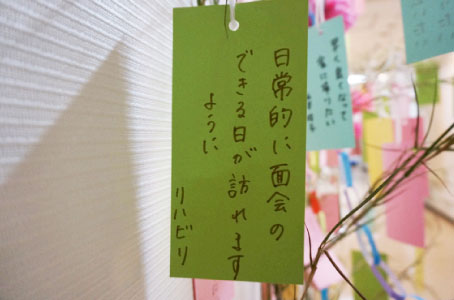 日常的に面会の
できる日が訪れます
ように
リハビリ
早く良くなって
家に帰りたい